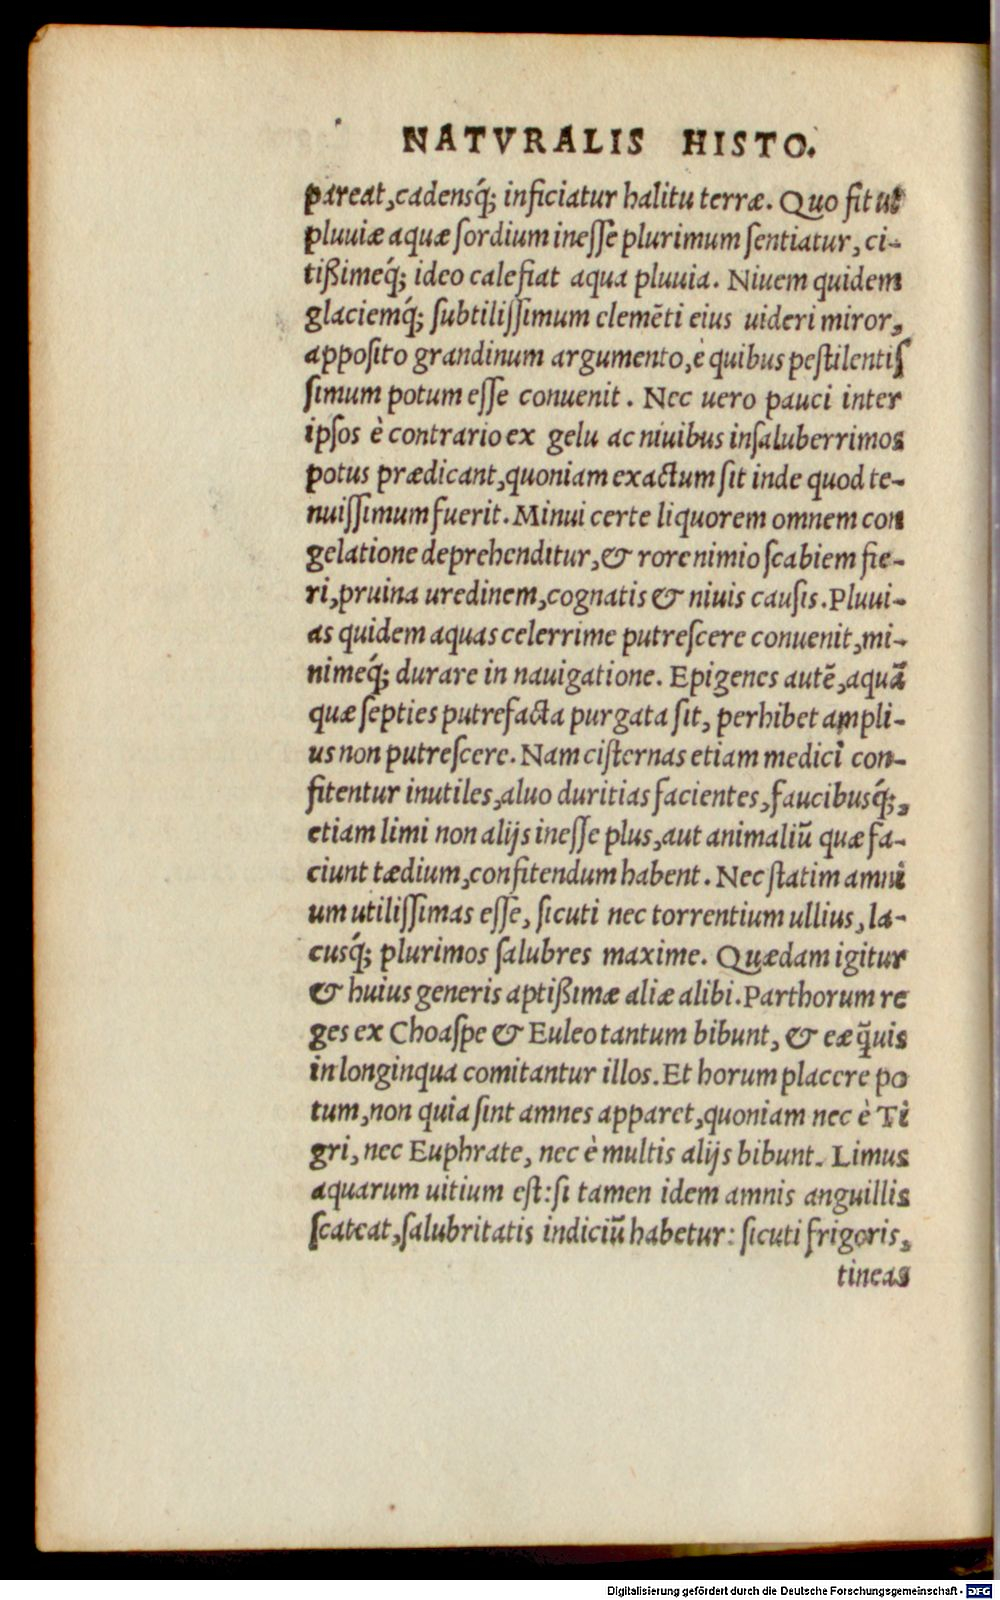 NATVRALIS HISTO.
pareat, cadensq́; inficiatur halitu terræ. Quo fit ut
pluuiæ aquæ ſordium ineſſe plurimum ſentiatur, ci-
tißimeq́; ideo calefiat aqua pluuia. Niuem quidem
glaciemq́; ſubtiliſſimum elemẽti eius uideri miror,
appoſito grandinum argumento, è quibus peſtilentiſ
ſimum potum eſſe conuenit. Nec uero pauci inter
ipſos è contrario ex gelu ac niuibus inſaluberrimos
potus prædicant, quoniam exactum ſit inde quod te-
nuiſſimum fuerit. Minui certe liquorem omnem con
gelatione deprehenditur, & rore nimio ſcabiem fie-
ri, pruina uredinem, cognatis & niuis cauſis. Pluui-
as quidem aquas celerrime putreſcere conuenit, mi-
nimeq́; durare in nauigatione. Epigenes autẽ, aquã
quæ ſepties putrefacta purgata ſit, perhibet ampli-
us non putreſcere. Nam ciſternas etiam medici con-
fitentur inutiles, aluo duritias facientes, faucibusq́;,
etiam limi non alijs ineſſe plus, aut animaliũ quæ fa-
ciunt tædium, confitendum habent. Nec ſtatim amni
um utiliſſimas eſſe, ſicuti nec torrentium ullius, la-
cusq́; plurimos ſalubres maxime. Quædam igitur
& huius generis aptißimæ aliæ alibi. Parthorum re
ges ex Choaſpe & Euleo tantum bibunt, & eæ q̃uis
in longinqua comitantur illos. Et horum placere po
tum, non quia ſint amnes apparet, quoniam nec è Ti
gri, nec Euphrate, nec è multis alijs bibunt. Limus
aquarum uitium eſt: ſi tamen idem amnis anguillis
ſcateat, ſalubritatis indiciũ habetur: ſicuti frigoris,
tineas
Digitalisierung gefördert durch die Deutsche Forschungsgemeinschaft - DFG